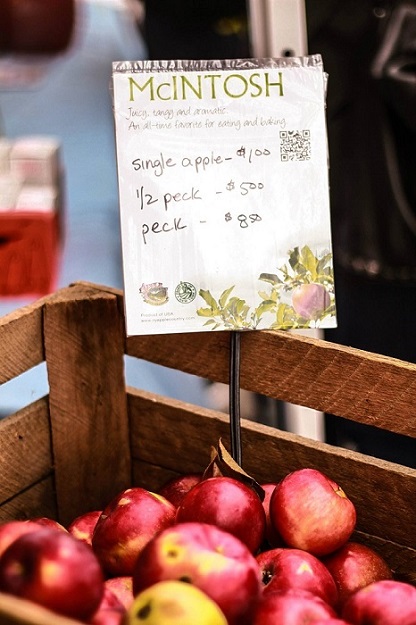 McINTOSH
Juicy, tangy and aromatic.
An all-time favorite for eating and baking.
single apple - $1.00
1/2 peck - $5.00
peck - $8.50
Product of USA